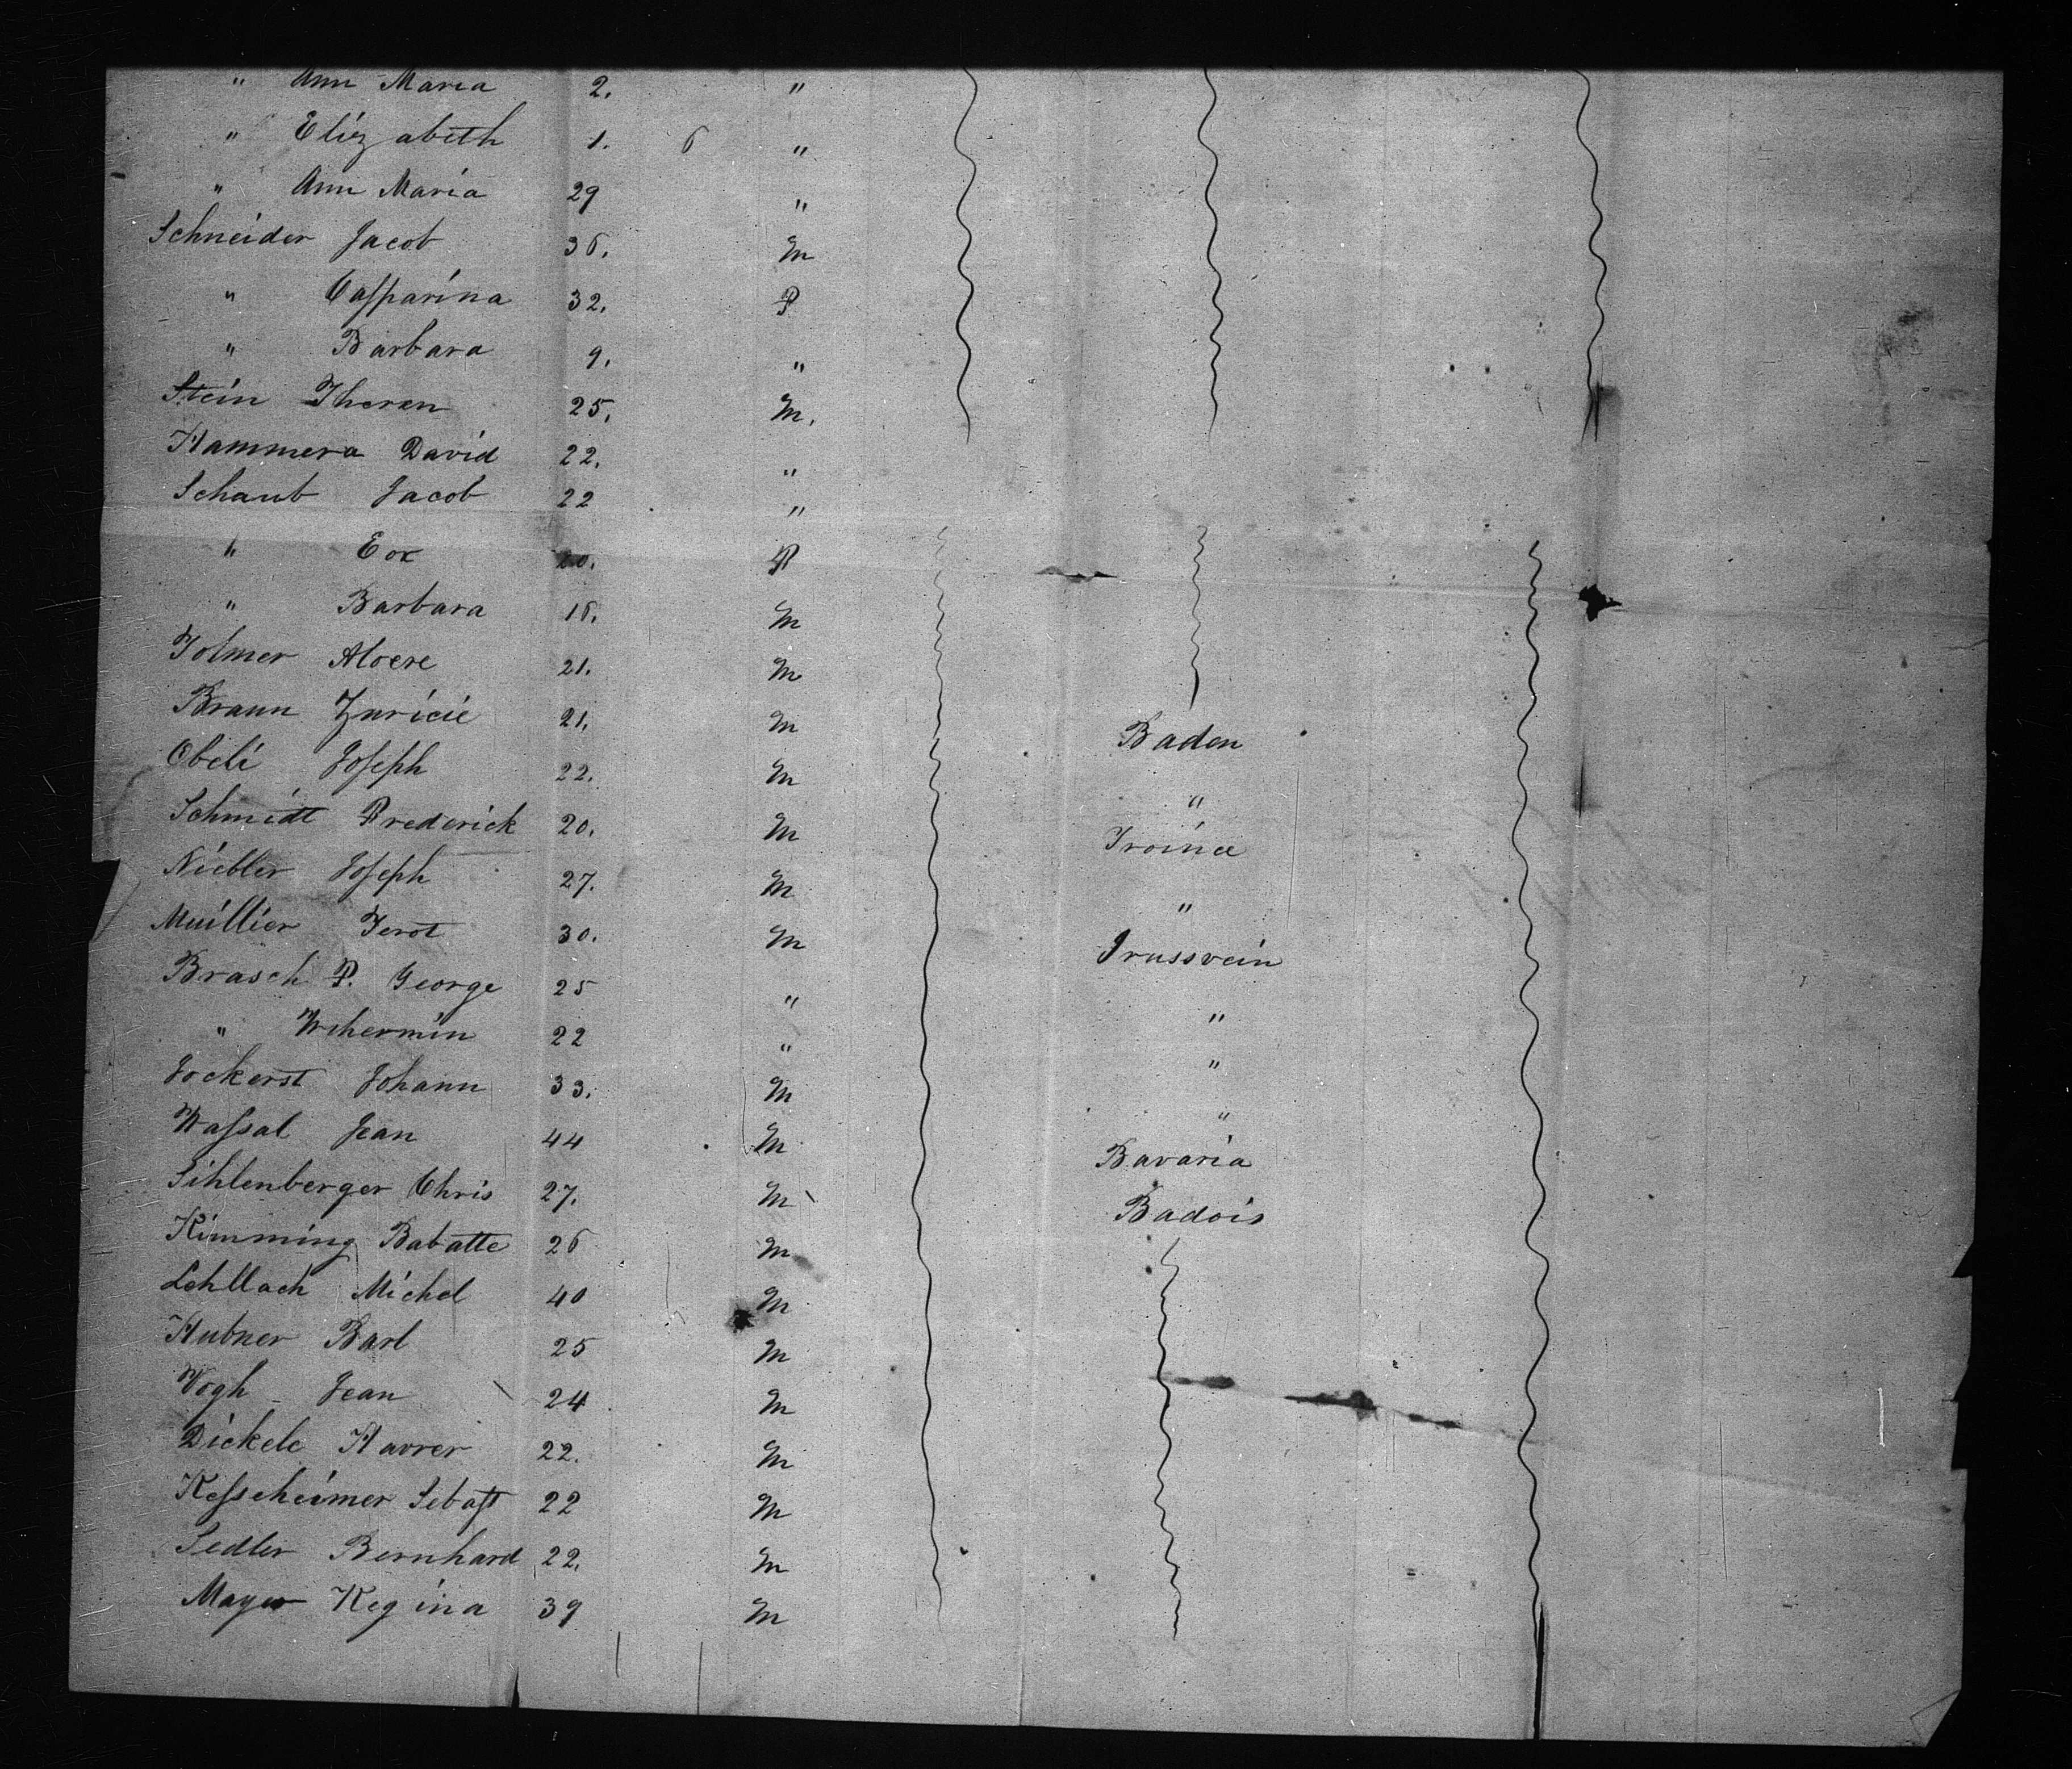 " Ann Maria 2. "
" Elizabeth 1. 6 "
" Ann Maria 29 "
Schneider Jacob 36. M
" Casparina 32. F
" Barbara 9. "
Stein Theren 25. M.
Hammera David 22. "
Schaub Jacob 22 "
" Eox 20. F
" Barbara 16. M
Folmer Aloere 21. M
Braun 21. M Baden
Obeli Joseph 22. M "
Schmidt Frederick 20. M
Niebler Joseph 27. M "
Muillier Ferot 30. M
Brasch F. George 25 " "
" Wihermin 22 " "
Jockerst Johann 33. M "
Wassal Jean 44 M Bavaria
Sihlenberger Chris 27. M Badois
Kimming Babatte 26 M
Lehllach Michel 40 M
Hubner Barl 25 M
Vogh Jean 24 M
Dickele Havrer 22. M
Kesseheimer Sebast 22 M
Sedler Bernhard 22. M
Mayer Regina 39 M